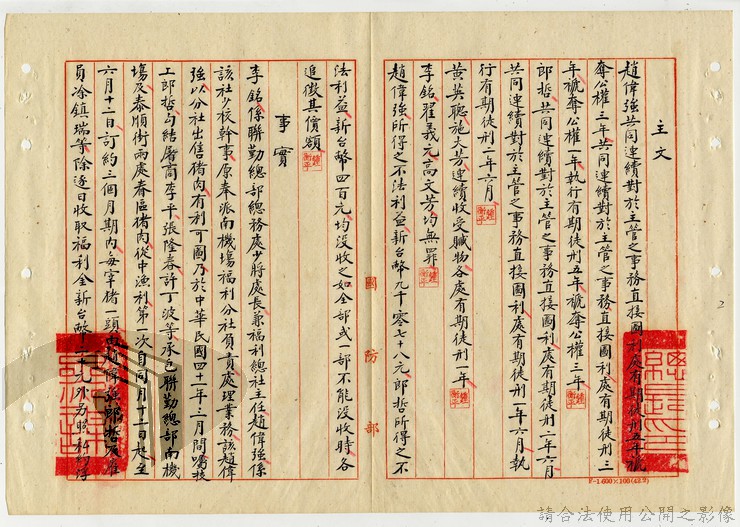 主文
趙偉強共同連續對於主管之事務直接圖利處有期徒刑五年褫
奪公權三年共同連續對於主管之事務直接圖利處有期徒刑三
年褫奪公權一年執行有期徒刑五年褫奪公權三年
郎哲共同連續對於主管之事務直接圖利處有期徒刑二年六月
共同連續對於主管之事務直接圖利處有期徒刑一年六月執
行有期徒刑二年六月
黃英聰施大芳連續收受贓物各處有期徒刑一年
李銘翟義元高文芳均無罪
趙偉強所得之不法利益新台幣九千零七十八元郎哲所得之不
國防部
法利益新台幣四百元均沒收之如全部或一部不能沒收時各
追徵其價額
事實
李銘係聯勤總部總務處少將處長兼福利總社主任趙偉強係
該社少校幹事原奉派南機場福利分社負責處理業務該趙偉
強以分社出售猪肉有利可圖乃於中華民國四十一年三月間囑技
工郎哲勾結屠商李平張隆春許丁波等承包聯勤總部南機
場及泰順街兩處眷區猪肉從中漁利第一次自同月十二日起至
六月十二日訂約三個月期內每宰猪一頭由趙偉強郎哲及雇
員冷鎮瑞等除逐日收取福利金新台幣二十元外另照
F-1600×100(42.2)
2
請合法使用公開之影像